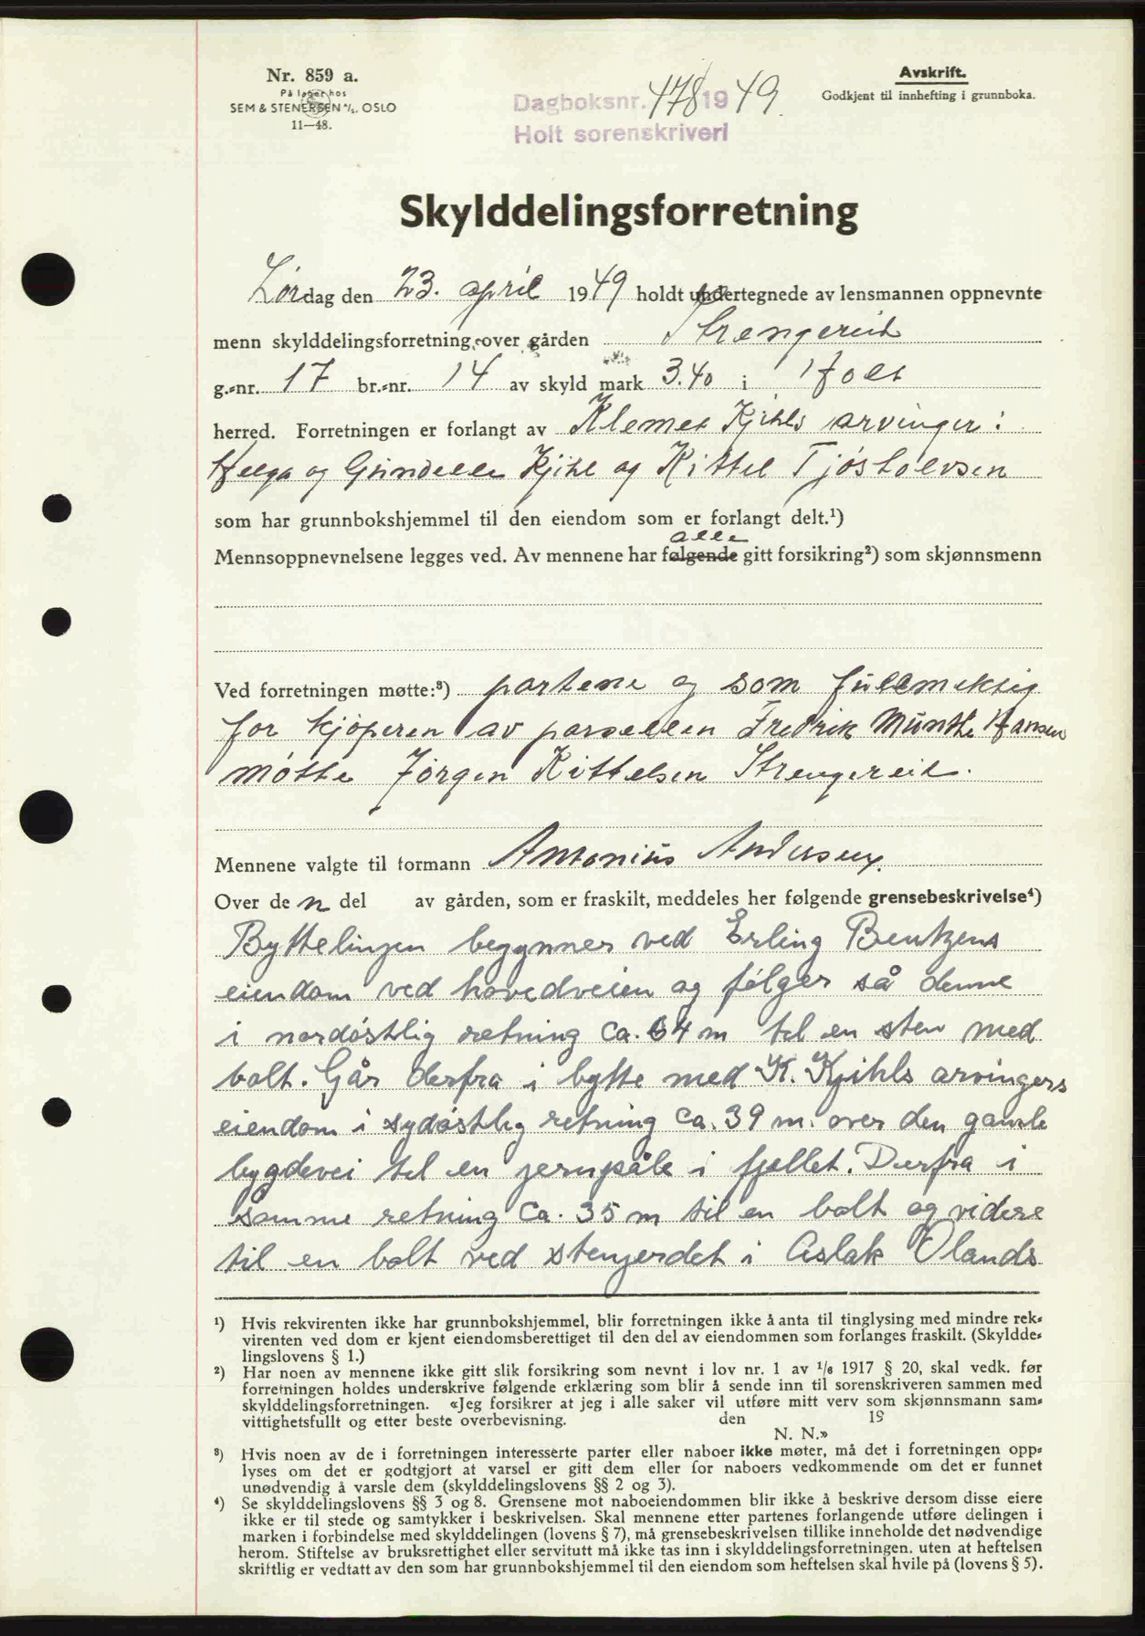 Nr. 859 a.
På lager hos
SEM & STENERSEN A/S. OSLO
11—48.
Dagboksnr. 478 1949.
Holt sorenskriveri
Avskrift.
Godkjent til innhefting i grunnboka.
Skylddelingsforretning
Lørdag den 23. april 1949 holdt undertegnede av lensmannen oppnevnte
menn skylddelingsforretning over gården Strengereid
g.-nr. 17 br.-nr. 14 av skyld mark 3.40 i Holt
herred. Forretningen er forlangt av Klemet Kjihls arvinger:
Helga og Gunda Kjihl og Kittel Tjøstolvsen
som har grunnbokshjemmel til den eiendom som er forlangt delt.¹)
alle
Mennsoppnevnelsene legges ved. Av mennene har følgende gitt forsikring²) som skjønnsmenn
Ved forretningen møtte:³) partene og som fullmektig
for kjøperen av parsellen Fredrik Munthe Hansen
møtte Jørgen Kittelsen Strengereid.
Mennene valgte til formann Antonius Andersen.
Over den del av gården, som er fraskilt, meddeles her følgende grensebeskrivelse⁴)
Byttelinjen begynner ved Erling Bentzens
eiendom ved hovedveien og følger så denne
i nordøstlig retning ca. 64 m til en sten med
bolt. Går derfra i bytte med K. Kjihls arvingers
eiendom i sydøstlig retning ca. 39 m. over den gamle
bygdevei til en jernpåle i fjellet. Derfra i
samme retning ca. 35 m til en bolt og videre
til en bolt ved stengerdet i Aslak Olands
¹) Hvis rekvirenten ikke har grunnbokshjemmel, blir forretningen ikke å anta til tinglysing med mindre rek-
virenten ved dom er kjent eiendomsberettiget til den del av eiendommen som forlanges fraskilt. (Skyldde-
lingslovens § 1.)
²) Har noen av mennene ikke gitt slik forsikring som nevnt i lov nr. 1 av 1/6 1917 § 20, skal vedk. før
forretningen holdes underskrive følgende erklæring som blir å sende inn til sorenskriveren sammen med
skylddelingsforretningen. «Jeg forsikrer at jeg i alle saker vil utføre mitt verv som skjønnsmann sam-
vittighetsfullt og etter beste overbevisning. den 19
N. N.»
³) Hvis noen av de i forretningen interesserte parter eller naboer ikke møter, må det i forretningen opp-
lyses om det er godtgjort at varsel er gitt dem eller for naboers vedkommende om det er funnet
unødvendig å varsle dem (skylddelingslovens §§ 2 og 3).
⁴) Se skylddelingslovens §§ 3 og 8. Grensene mot naboeiendommen blir ikke å beskrive dersom disse eiere
ikke er til stede og samtykker i beskrivelsen. Skal mennene etter partenes forlangende utføre delingen i
marken i forbindelse med skylddelingen (lovens § 7), må grensebeskrivelsen tillike inneholde det nødvendige
herom. Stiftelse av bruksrettighet eller servitutt må ikke tas inn i skylddelingsforretningen, uten at heftelsen
skriftlig er vedtatt av den som har grunnbokshjemmel til den eiendom som heftelsen skal hvile på (lovens § 5).